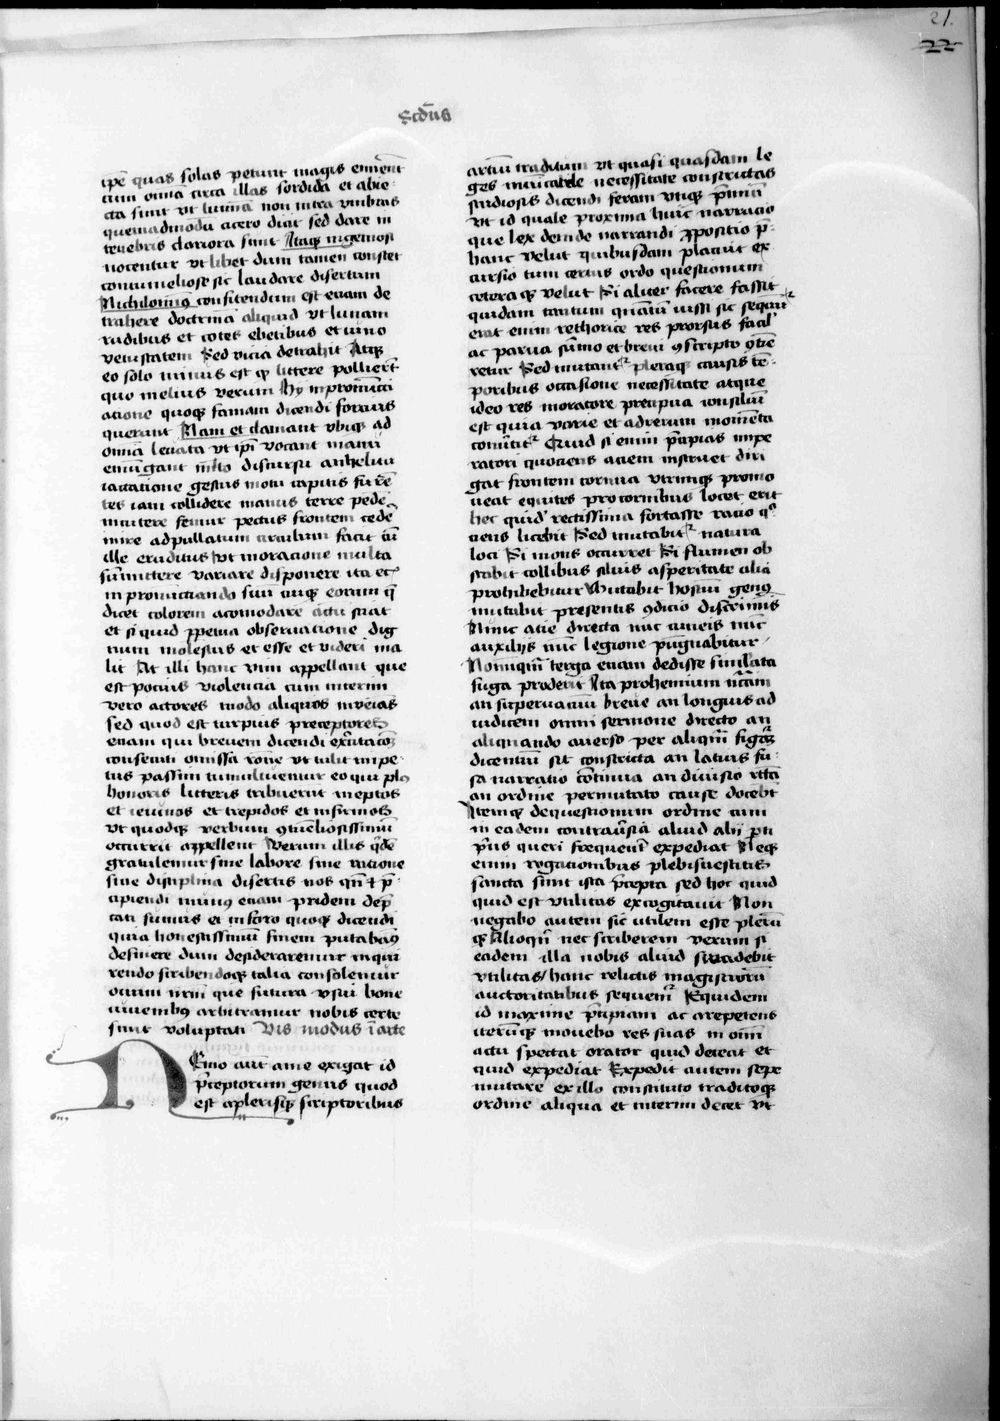 21.
22
Scd̄us
ip̄e quas solas petunt magis eminent
cum om̄ia circa illas sordida et abie-
cta sint vt lumina non intra vmbras
quemadmodū cicero dicit sed dare in
tenebris clariora sunt Itaqꝫ ingeniosi
vocentur vt libet dum tamen constet
contumeliose sic laudare disertum
Nichilominꝰ confitendum est etiam de
trahere doctrinā aliquid vt limam
rudibus et cotes ebetibus et vino
vetustatem Sed vicia detrahit Atqꝫ
eo solo minus est qꝫ littere polliert̄
quo melius verum Hij in pronūci
atione quoqꝫ famam dicendi fortius
querunt Nam et clamant vbiqꝫ ad
om̄ia leuata vt ip̄i vocant manū
emūgant ml̄to discursu anhelitu
iactatione gestus motu capitis furē
tes iam collidere manus terre pede
incutere femur pectus frontem cede
mire ad pullatum circulum facit cū
ille eruditus vt in oracione multa
sūmittere variare disponere ita etᶜ
in pronunciando suū cuiqꝫ eorum q̄
dicet colorem acomodare actū sciat
et si quid ꝑpetua obseruacione dig
num molestus et esse et videri ma
lit At illi hanc vim appellant que
est pocius violencia cum interim
vero actores modo aliquos inueias
sed quod est turpius preceptores
etiam qui breuem dicendi exercitacōꝫ
consecuti omissa rōne vt tulit impe-
tus passim tumultuentur eo qui plꝰ
honoris litteris tribuerint ineptos
et ieiunos et trepidos et infirmos
vt quodqꝫ verbum ꝯtumeliosissimū
occurrit appellent Verum illis q̄dē
gratulemur sine labore sine ratione
sine disciplina disertis nos qn̄ ⁊ p̄-
cipiendi munꝰ etiam pridem dep̄
cati sumus et in foro quoqꝫ dicendi
quia honestissimū finem putabamꝰ
desinere dum desideraremur inqui
rendo scribendoqꝫ talia consolemur
ocium nr̄m que futura vsui bone
iuuentꝰ arbitramur nobis certe
sunt voluptati Uis modus ī arte
Nemo aut̄ a me exigat id
p̄ceptorum genus quod
est a plerisqꝫ scriptoribus
artiū traditum vt quasi quasdam le
ges īmutabile necessitate constrictas
studiosis dicendi feram vtiqꝫ p̄miū
vt id quale proxima huic narracio
que lex deinde narrandi ꝓpositio p̄-
hanc velut quibusdam placuit ex
cursio tum certus ordo questionum
ceteraqꝫ velut Si aliter facere fas sit
quidam tantum quātū iussi sic sequūtʳ
erat enim rethorice res prorsus facilʾ
ac parua si vno et breui ꝯscripto ꝯtine
retur Sed mutantʳ pleraqꝫ causis tē-
poribus occasione necessitate atque
ideo res in oratore precipua consiliū
est quia varie et ad rerum momēta
cōuertitʳ Quid si enim p̄cipias impe
ratori quociens aciem instruet diri
gat frontem cornua vtrimqꝫ promo
ueat equites pro cornibus locet erit
hec quidʾ rectissima fortasse ratio qͦ
ciens licebit Sed mutabitʳ natura
loci Si mons occurret Si flumen ob
stabit collibus siluis asperitate aliā
prohibebitur Mutabit hostiū genꝰ
mutabit presentis ꝯdicio discriminis
Nunc acie directa nūc cuneis nūc
auxilijs nūc legione pūgnabitur
Nonnūqm̄ terga etiam dedisse simulata
fuga proderit Ita prohemium ncāriū
an superuacuū breue an longius ad
iudicem omni sermone directo an
aliquando auerso per aliqm̄ figurā
dicentiū sit constricta an latius fu-
sa narratio continua an diuisio rc̄tā
an ordine permutato cause docebt̄
Itemqꝫ de questionum ordine cum
in eadem contrauersia aliud alij p̄ti
prius queri frequenter expediat Neqꝫ
enim rogationibus plebisue scitis
sancta sunt ista p̄cepta sed hoc quid
quid est vtilitas excogitauit Non
negabo autem sic vtilem esse plerū
qꝫ Alioqn̄ nec scriberem verum si
eadem illa nobis aliud suadebit
vtilitas hanc relictis magistrorū
auctoritatibus sequemʳ Equidem
id maxime p̄cipiam ac arepetens
iterumqꝫ mouebo res suas in om̄i
actu spectat orator quid deceat et
quid expediat Expedit autem sepe
mutare ex illo constituto traditoqꝫ
ordine aliqua et interim decet vt